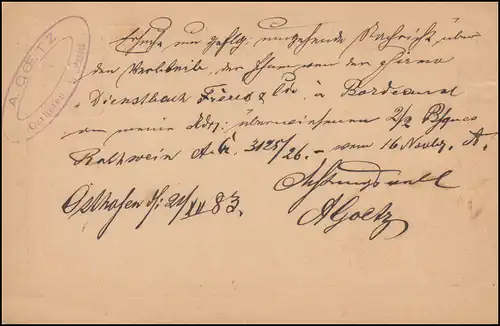 A. GOETZ
Osthofen
Ersuche um geflg. umgehende Nachricht, über
den Verbleib, der Ihnen von der Firma
Dienstbach Frères & Cie à Bordeaux
an meine Adr: überwiesenen 2/2 Bques
Rothwein A.G. 3125/26. – vom 16 Novbr.
Achtungsvoll
Osthofen 21/XII 83.
AGoetz